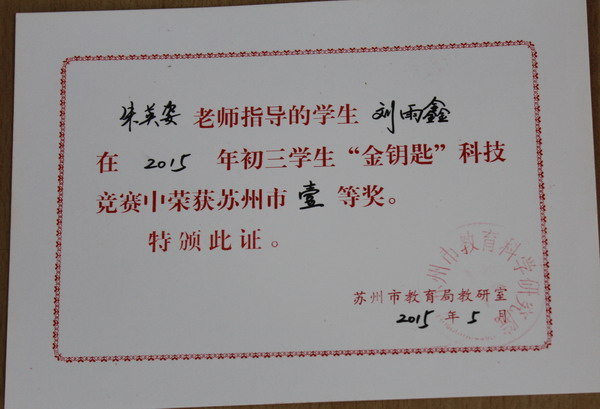 朱英姿 老师指导的学生 刘雨鑫
在 2015 年初三学生“金钥匙”科技
竞赛中荣获苏州市 壹 等奖。
特颁此证。
苏州市教育局教研室
2015 年 5 月
州市教育科学研究院